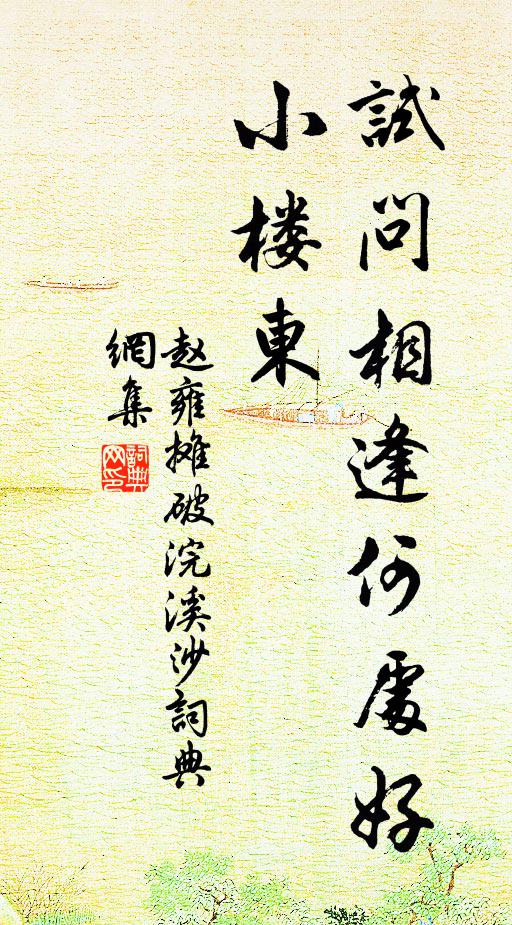 試問相逢何處好
小楼東
赵雍摊破浣溪沙詞典
網集
詞典
网印